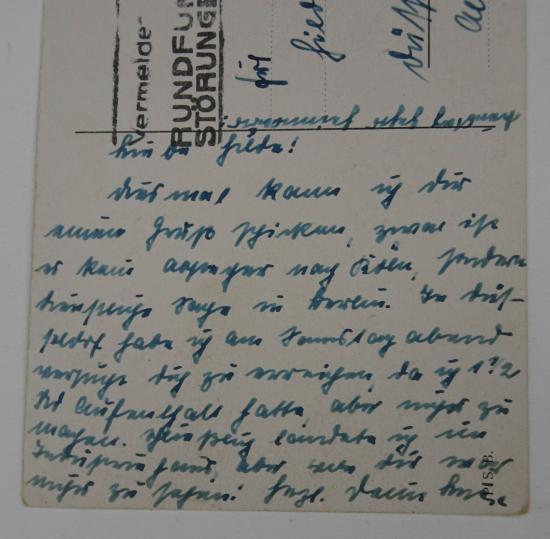 Vermeide
RUNDFUN
STÖRUNG
Frl
Hild
Düss
Liebe Hilde!
Diesmal kann ich Dir
einen Gruß schicken, zwar ist
er kein nach Köln, sondern
Tage in Berlin. In Düs-
seldorf habe ich am Samstag abend
versucht dich zu erreichen, da ich 1 1/2
Std Aufenthalt hatte aber nichts zu
machen. landete ich im
aber von dir war
nichts zu sehen! Herzl. Dein
PISB.